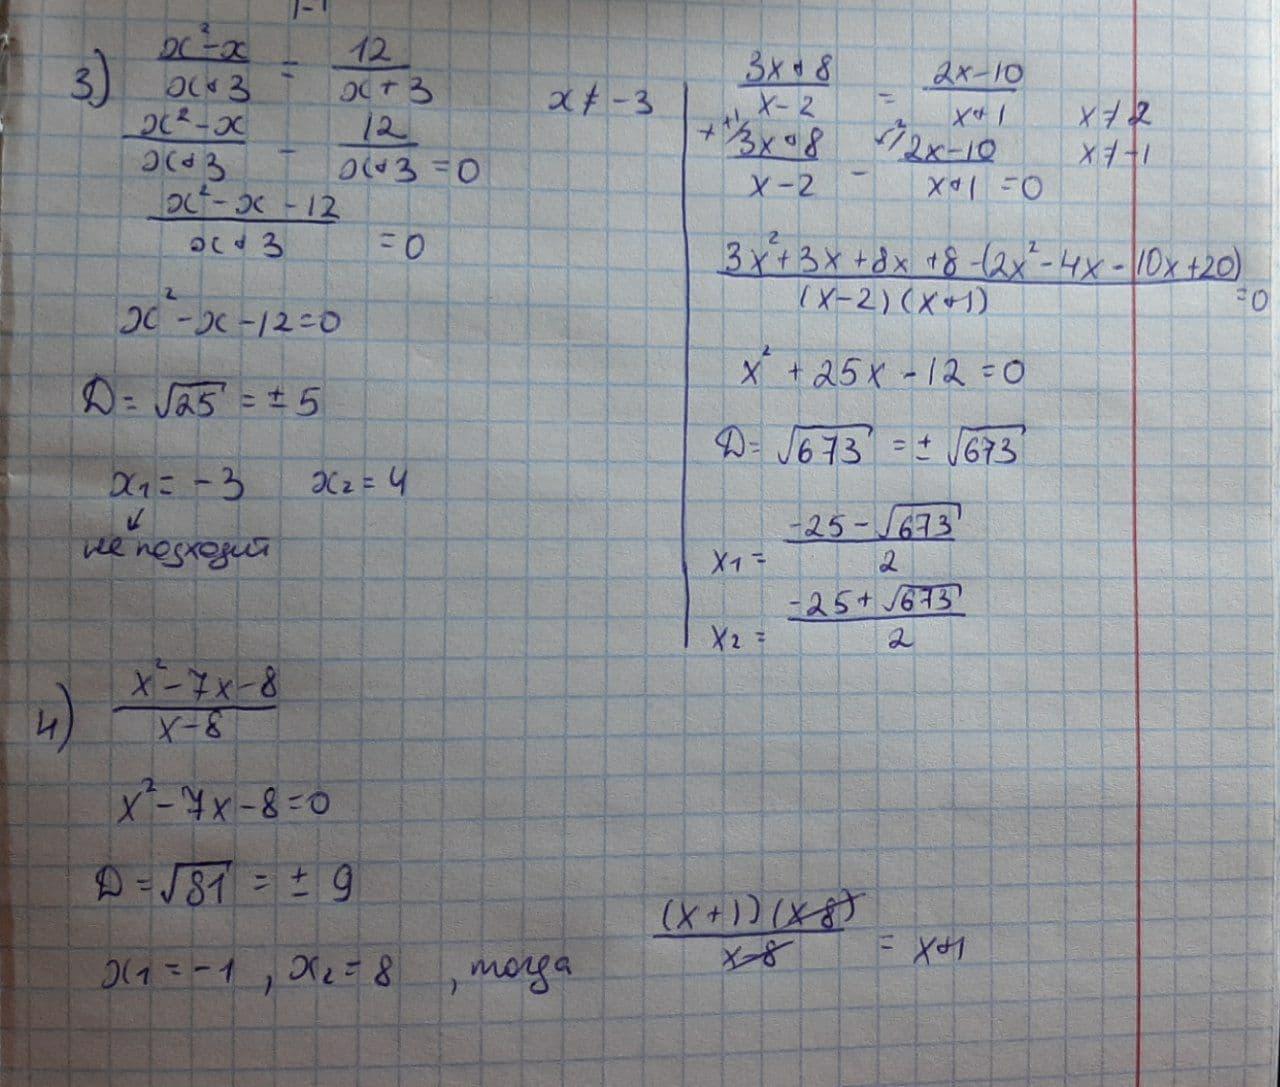 3) (x²-x)/(x+3) = 12/(x+3)
x ≠ -3
(x²-x)/(x+3) - 12/(x+3) = 0
(x²-x-12)/(x+3) = 0
x²-x-12=0
D = √25 = ± 5
x₁ = -3 x₂ = 4
не подходит
(3x+8)/(x-2) = (2x-10)/(x+1) x ≠ 2
(3x+8)/(x-2) - (2x-10)/(x+1) = 0 x ≠ -1
(3x²+3x+8x+8-(2x²-4x-10x+20))/((x-2)(x+1)) = 0
x²+25x-12=0
D = √673 = ± √673
x₁ = (-25-√673)/2
x₂ = (-25+√673)/2
4) (x²-7x-8)/(x-8)
x²-7x-8=0
D = √81 = ± 9
x₁ = -1, x₂ = 8, тогда ((x+1)(x-8))/(x-8) = x+1